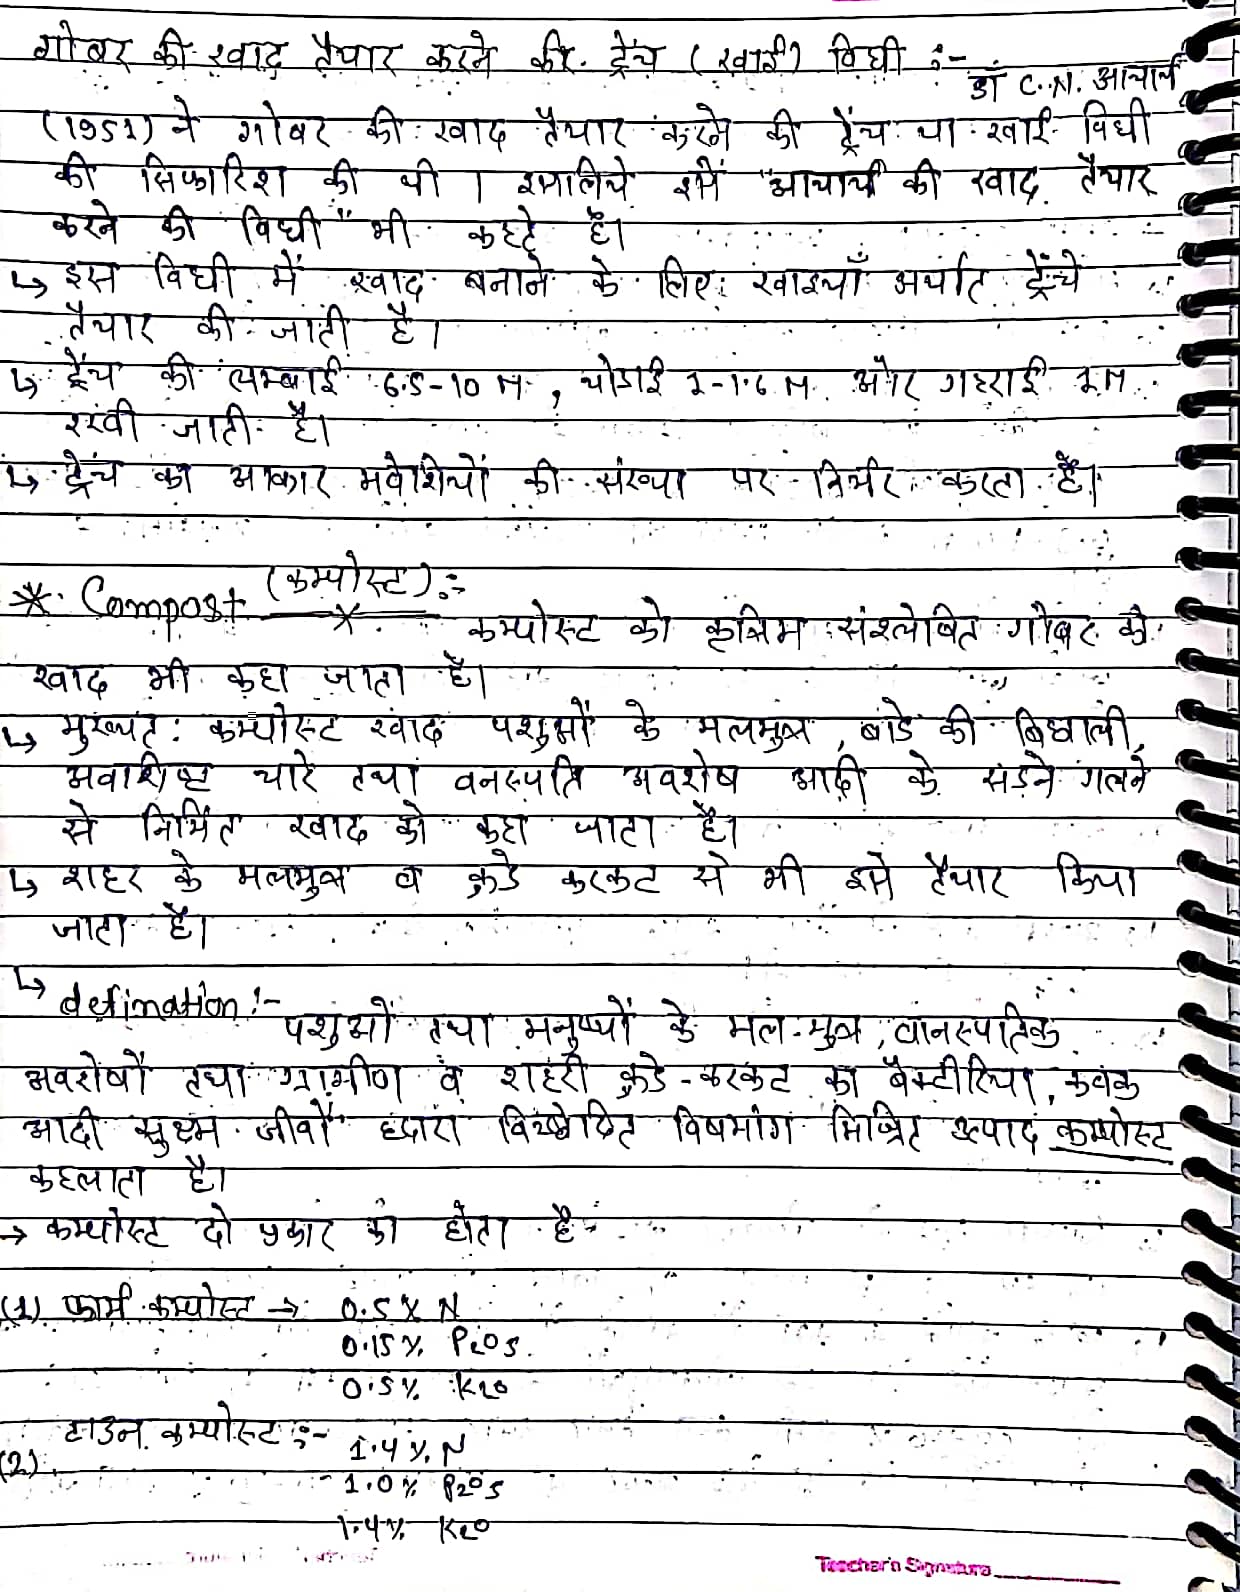 गोबर की खाद तैयार करने की ट्रेंच (खाई) विधी :-
डॉ C.N. आचार्य
(1951) ने गोबर की खाद तैयार करने की ट्रेंच या खाई विधी
की सिफारिश की थी। इसलिये इसे "आचार्य की खाद तैयार
करने की विधी" भी कहते है।
↳ इस विधी में खाद बनाने के लिए खाइयाँ अर्थात ट्रेंचे
तैयार की जाती है।
↳ ट्रेंच की लम्बाई 6.5-10 M, चोडाई 1-1.6 M. और गहराई 1M
रखी जाती है।
↳ ट्रेंच का आकार मवेशियों की संख्या पर निर्भर करता है।
* Compost (कम्पोस्ट) :-
कम्पोस्ट को कृत्रिम संश्लेषित गोबर की
खाद भी कहा जाता है।
↳ मुख्यत: कम्पोस्ट खाद पशुओं के मलमुत्र, बाडे की बिछाली,
अवाशिष्ट चारे तथा वनस्पति अवशेष आदी के सडने गलने
से निर्मित खाद को कहा जाता है।
↳ शहर के मलमुत्र व कुडे करकट से भी इसे तैयार किया
जाता है।
↳ defination :-
पशुओं तथा मनुष्यों के मल-मुत्र, वानस्पतिक
अवशेषों तथा ग्रामीण व शहरी कुडे-करकट का बैक्टीरिया, कवक
आदी सुक्ष्म जीवों द्वारा विच्छेदित विषमांग मिश्रित उत्पाद कम्पोस्ट
कहलाता है।
→ कम्पोस्ट दो प्रकार का होता है
(1) फार्म कम्पोस्ट → 0.5% N
0.15% P₂O₅.
0.5% K₂O
(2) टाउन कम्पोस्ट :-
1.4% N
1.0% P₂O₅
1.4% K₂O
Teacher's Signature